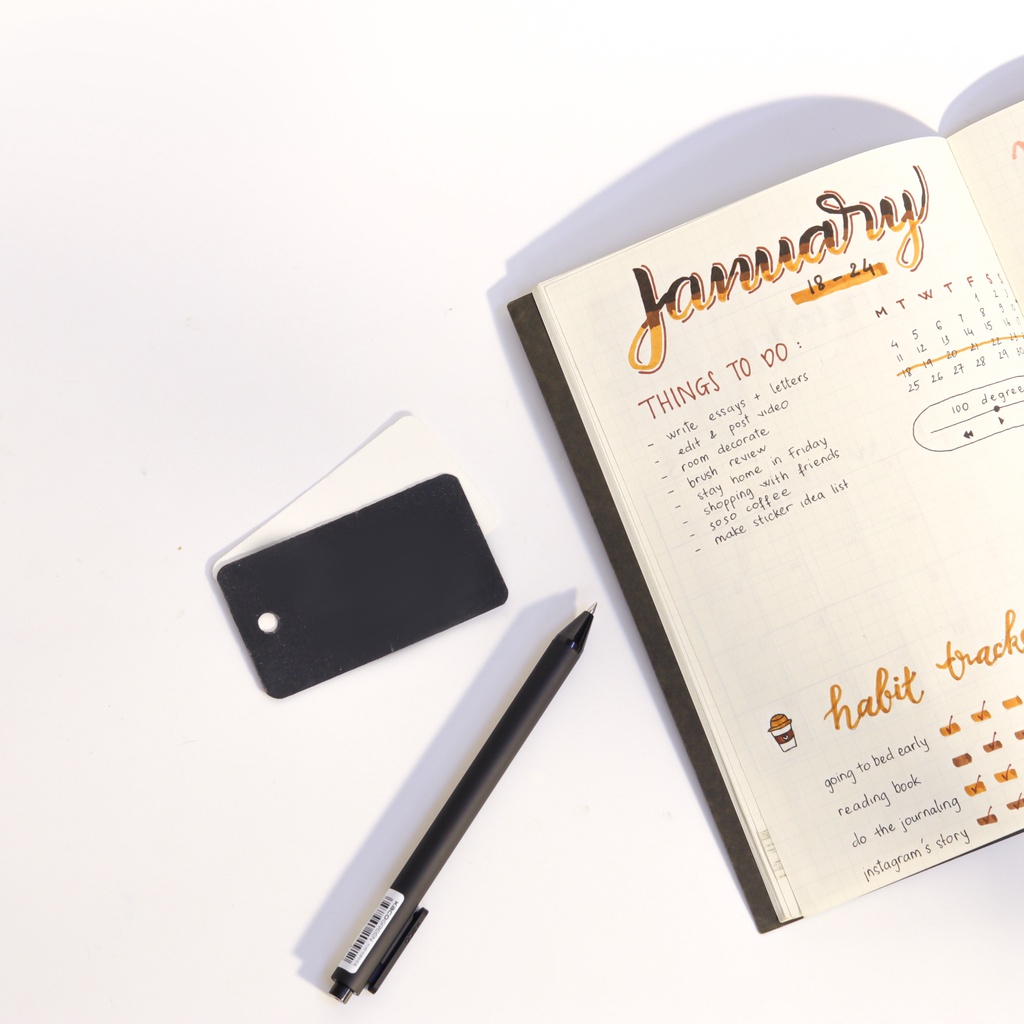 January
18 - 24
THINGS TO DO :
- write essays + letters
- edit & post video
- room decorate
- brush review
- stay home in Friday
- shopping with friends
- soso coffee
- make sticker idea list
M T W T F S S
1 2 3
4 5 6 7 8 9
11 12 13 14 15 16
18 19 20 21 22 23
25 26 27 28 29 30
100 degree
habit track
going to bed early
reading book
do the journaling
instagram's story